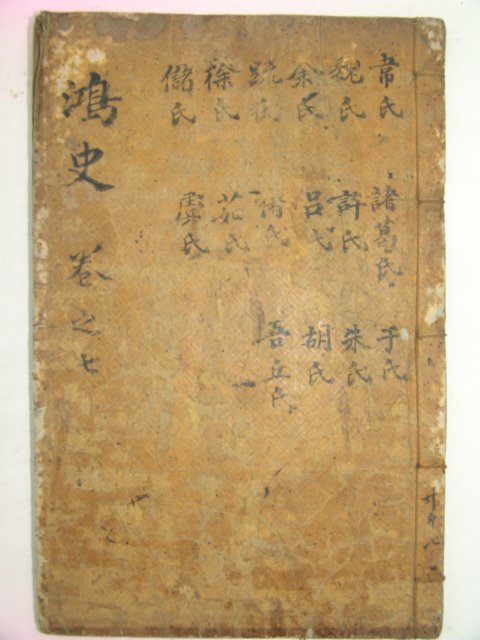 常氏 諸葛氏 于氏
魏氏 許氏 朱氏
余氏 呂氏 胡氏
疏氏 脩氏 吾丘氏
徐氏 茹氏
儲氏 虞氏
鴻史 卷之七